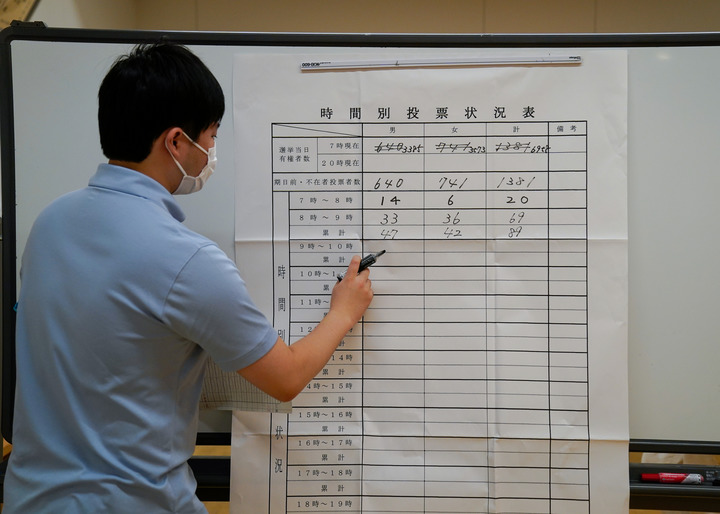 時間別投票状況表
男 女 計 備考
選挙当日有権者数 7時現在 640 3385 741 3573 1381 6958
20時現在
期日前・不在者投票者数 640 741 1381
7時～8時 14 6 20
8時～9時 33 36 69
累計 47 42 89
9時～10時
累計
10時～
累
11時～
累
12
14時
累計
14時～15時
累計
15時～16時
累計
16時～17時
累計
17時～18時
累計
18時～19時
時間別
状況